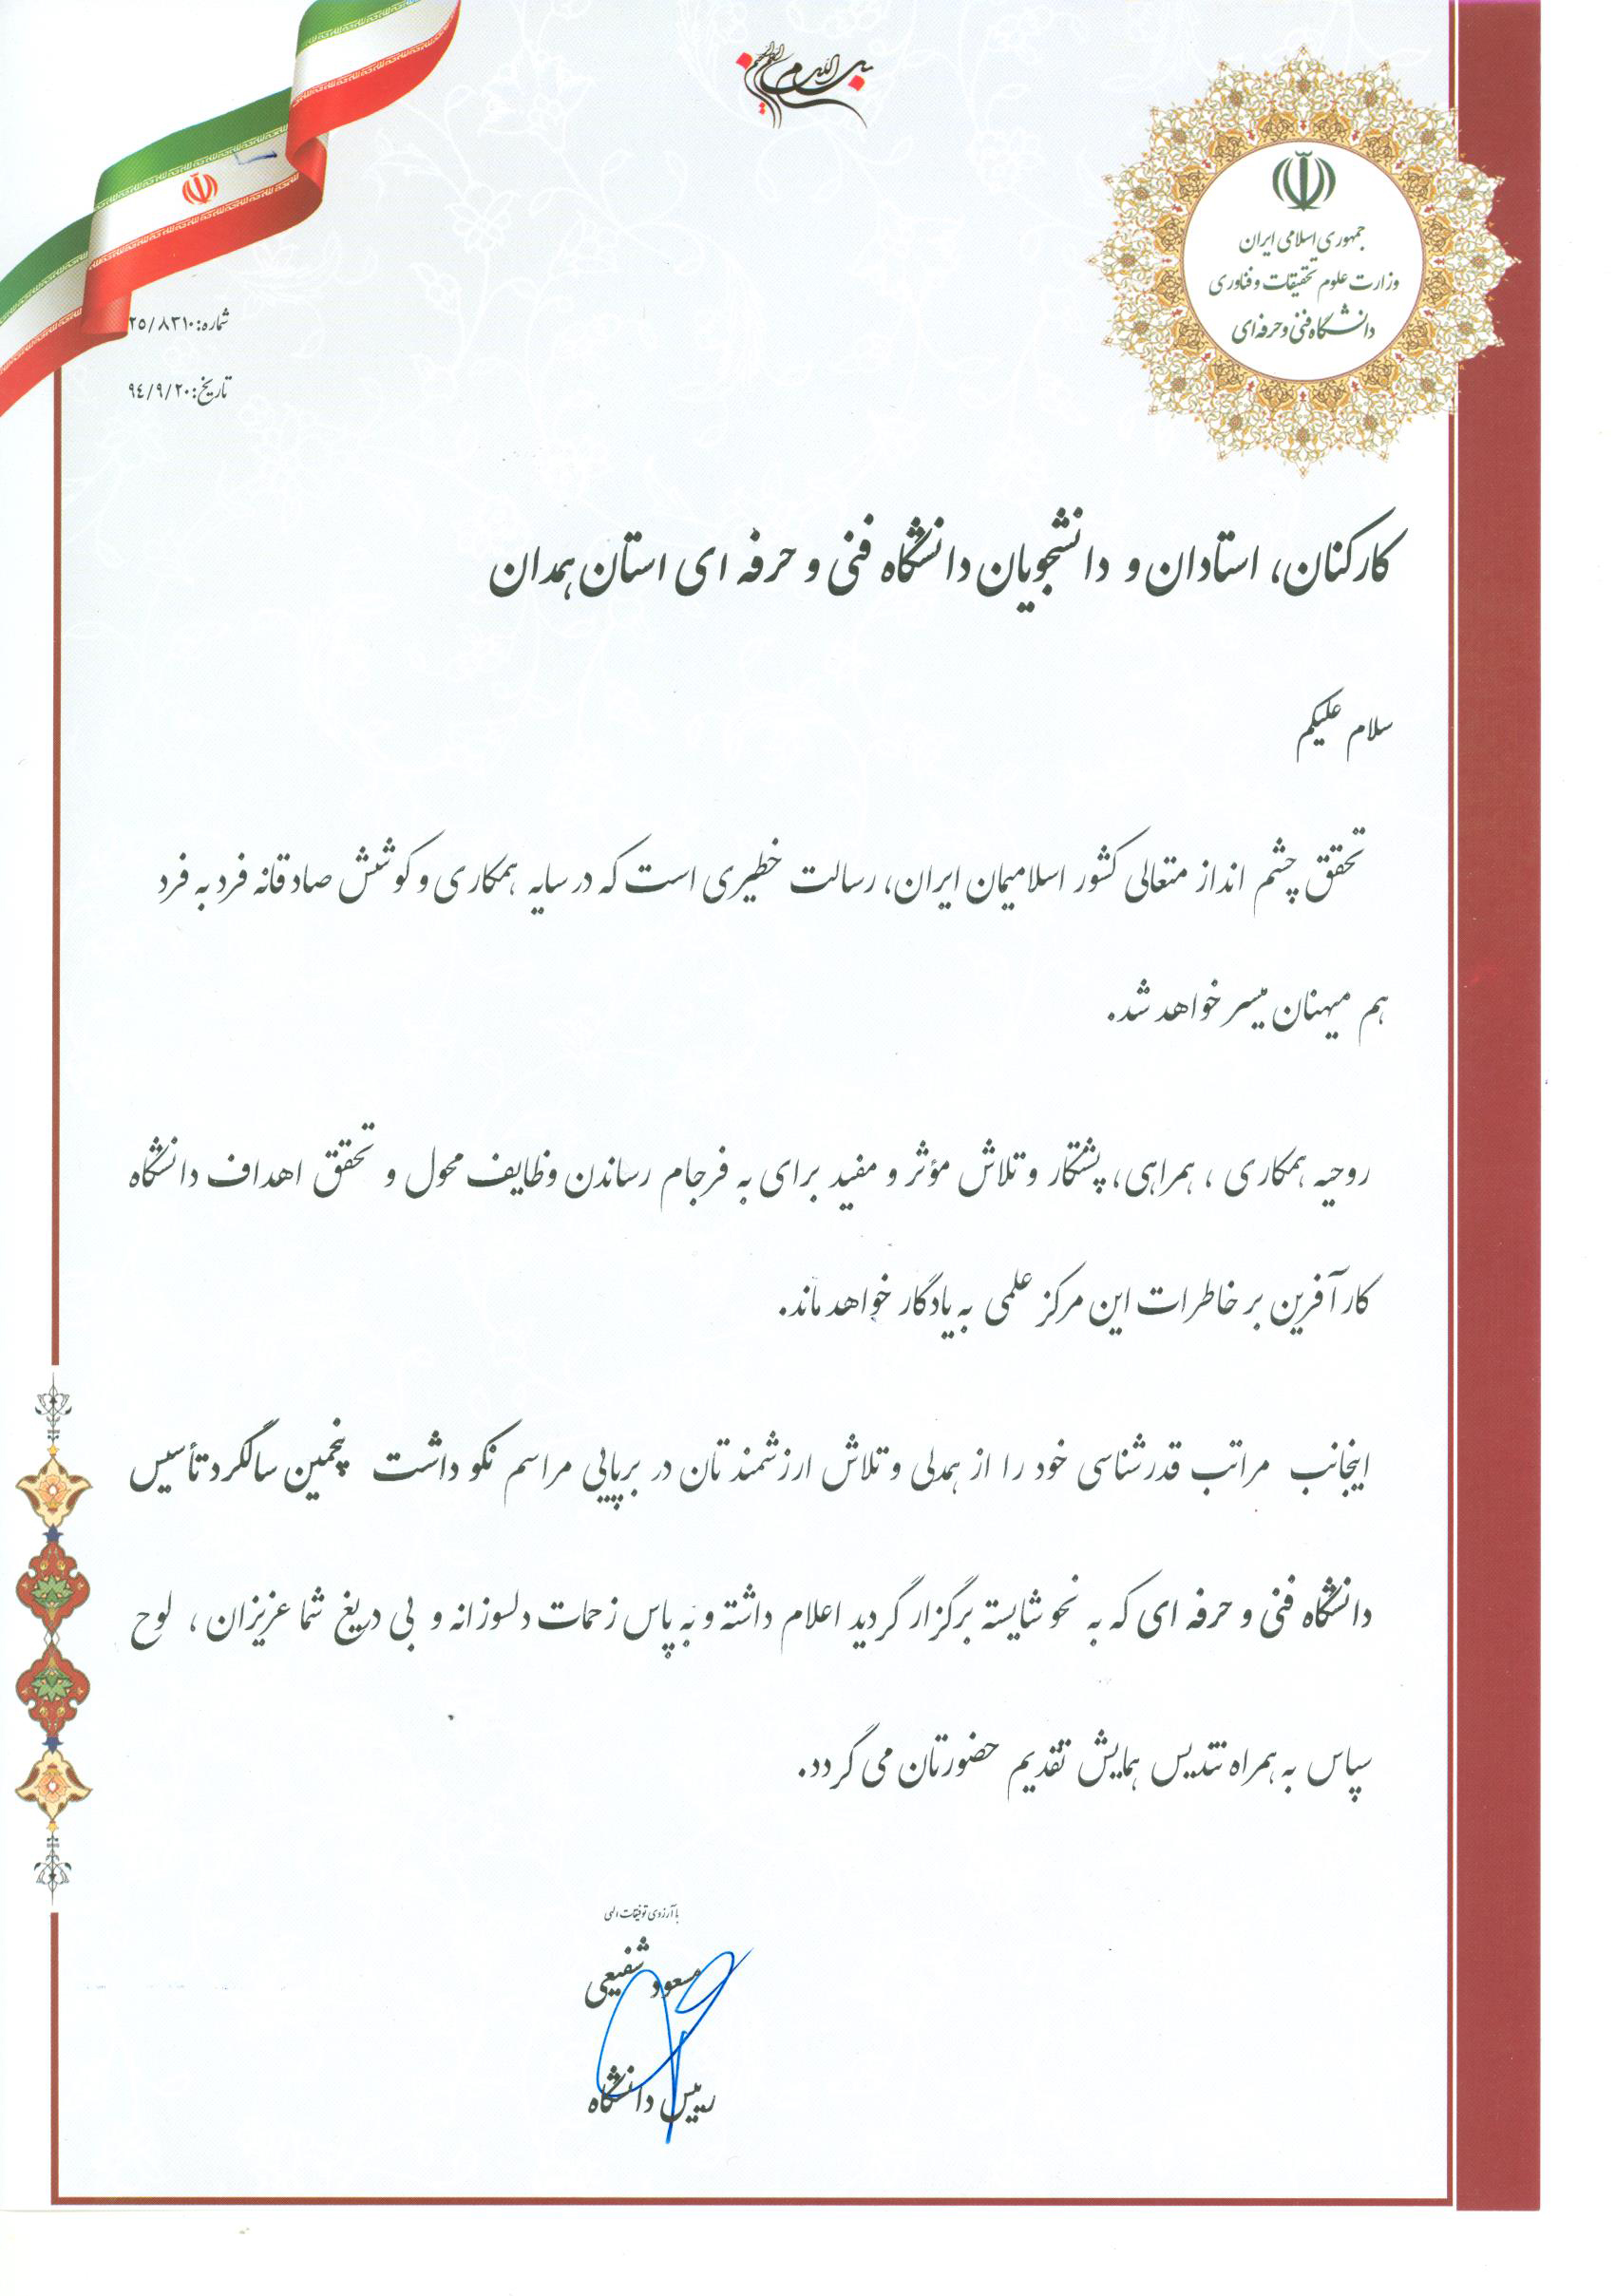 بسم الله الرحمن الرحیم
جمهوری اسلامی ایران
وزارت علوم تحقیقات و فناوری
دانشگاه فنی و حرفه‌ای
شماره: ۲۵/۸۳۱۰
تاریخ: ۹٤/۹/۲۰
کارکنان، استادان و دانشجویان دانشگاه فنی و حرفه ای استان همدان
سلام علیکم
تحقق چشم انداز متعالی کشور اسلامیمان ایران، رسالت خطیری است که در سایه همکاری و کوشش صادقانه فرد به فرد
هم میهنان میسر خواهد شد.
روحیه همکاری ، همراهی، پشتکار و تلاش مؤثر و مفید برای به فرجام رساندن وظایف محول و تحقق اهداف دانشگاه
کار آفرین بر خاطرات این مرکز علمی به یادگار خواهد ماند.
اینجانب مراتب قدرشناسی خود را از همدلی و تلاش ارزشمندتان در برپایی مراسم نکو داشت پنجمین سالگرد تأسیس
دانشگاه فنی و حرفه ای که به نحو شایسته برگزار گردید اعلام داشته و به پاس زحمات دلسوزانه و بی دریغ شما عزیزان ، لوح
سپاس به همراه تندیس همایش تقدیم حضورتان می گردد.
با آرزوی توفیقات الهی
مسعود شفیعی
رییس دانشگاه